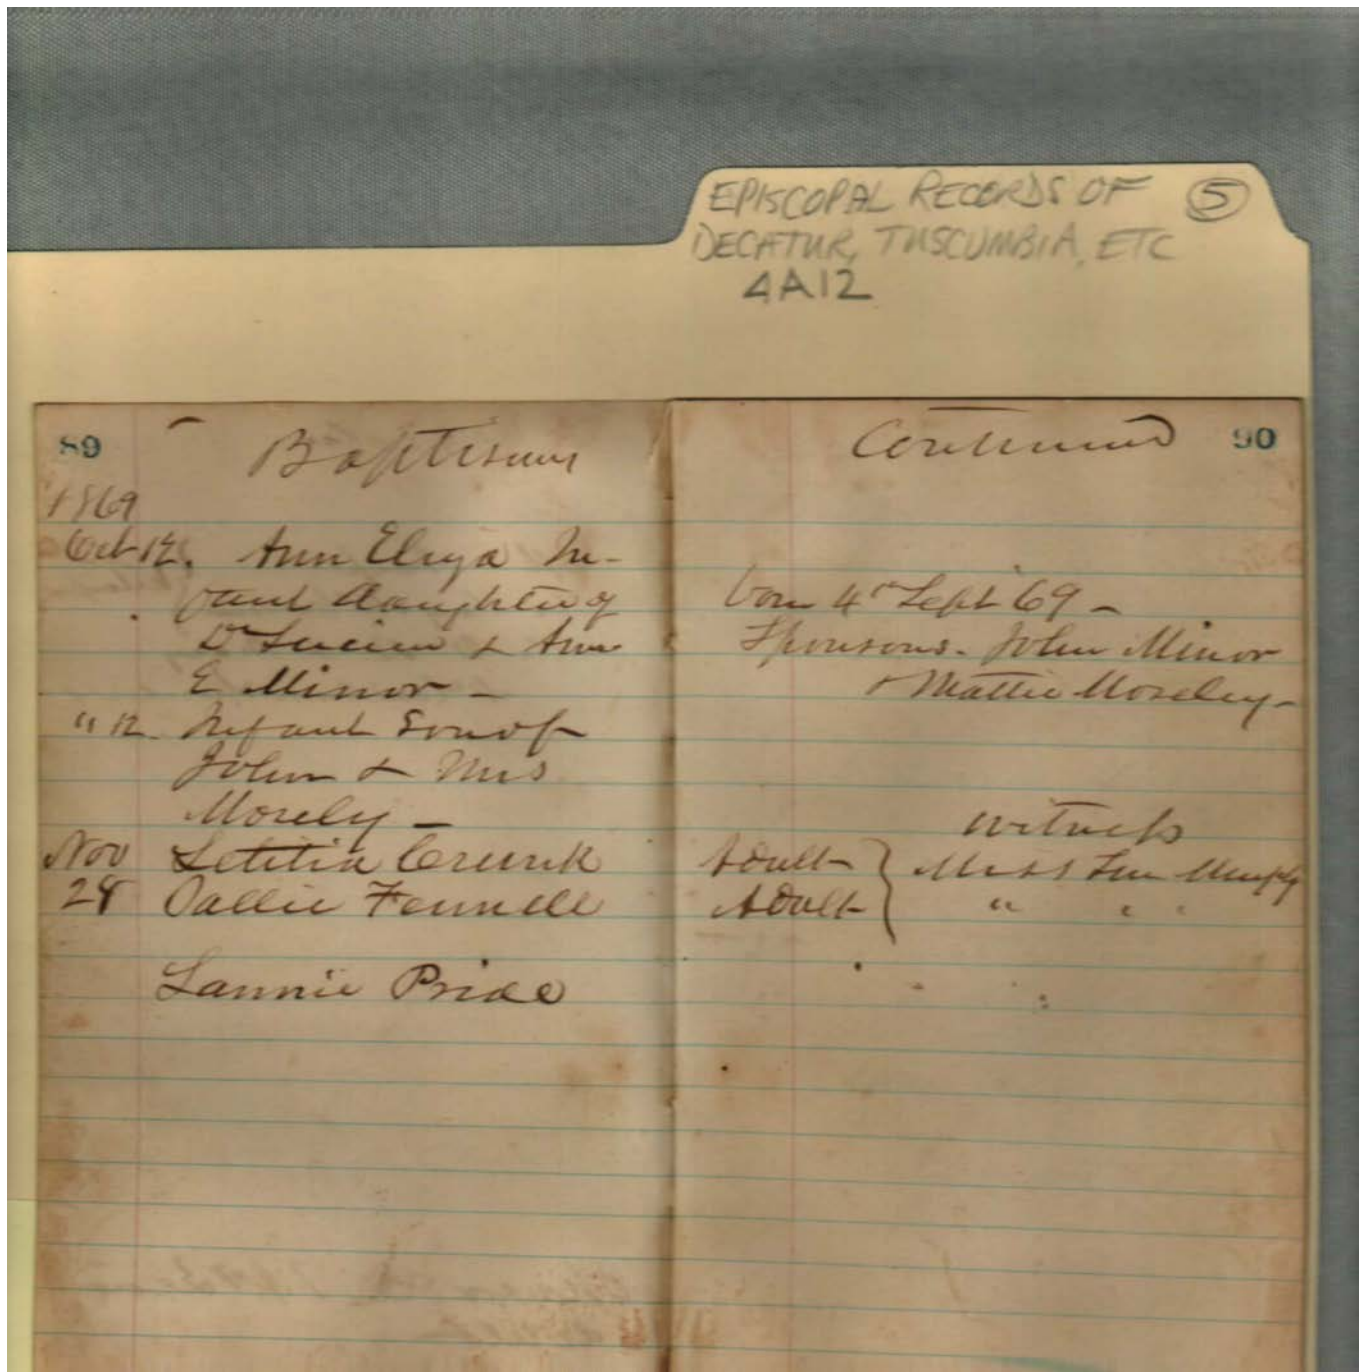 EPISCOPAL RECORDS OF 5
DECATUR, TUSCUMBIA, ETC
4A12
89 Baptisms
1869
Oct 12. Ann Eliza In-
fant daughter of
Dr Lucien & Ann
E Minor -
" 12. Infant Son of
John & Mrs
Morely -
Nov Letitia Crunk
28 Sallie Fennell
Lannie Pride
Continued 90
born 4th Sept 69 -
Sponsors. John Minor
& Mattie Moseley -
witness
Adult Miss Murphy
Adult " " "